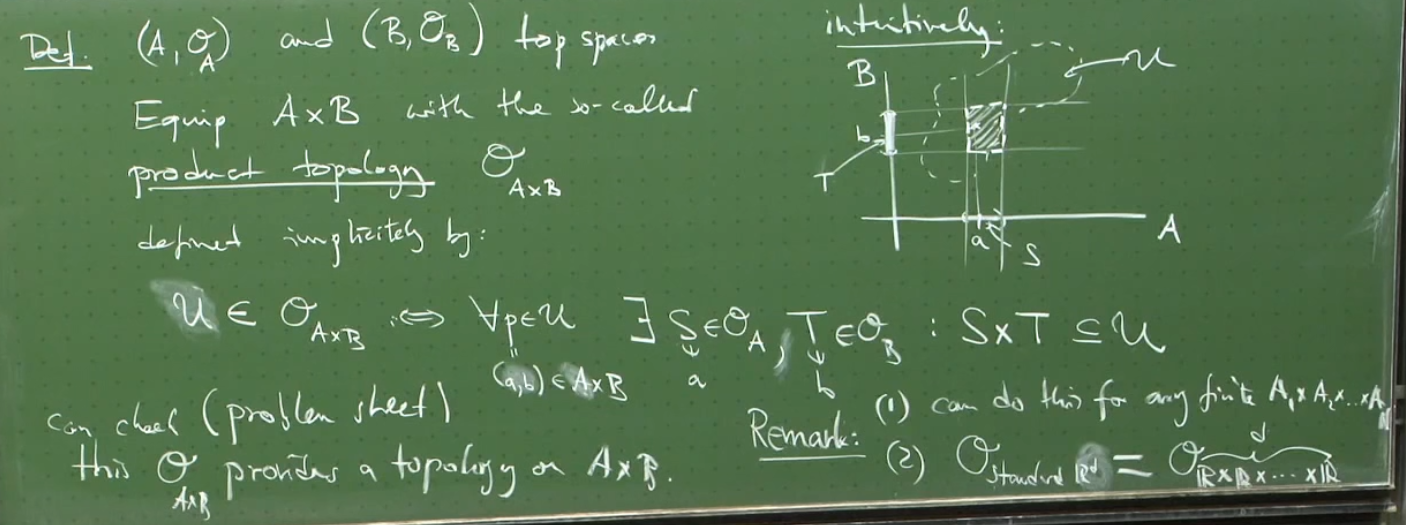 Def. (A, O_A) and (B, O_B) top spaces
Equip A×B with the so-called
product topology O_{A×B}
defined implicitely by:
U ∈ O_{A×B} :⇔ ∀p∈U ∃ S∈O_A, T∈O_B : S×T ⊆ U
(a,b) ∈ A×B a b
can check (problem sheet)
this O_{A×B} provides a topology on A×B.
intuitively:
B
U
b
T
a
S
A
Remark: (1) can do this for any finite A_1×A_2×...×A_N
(2) O_{standard ℝ^d} = O_{ℝ×ℝ×...×ℝ}
d